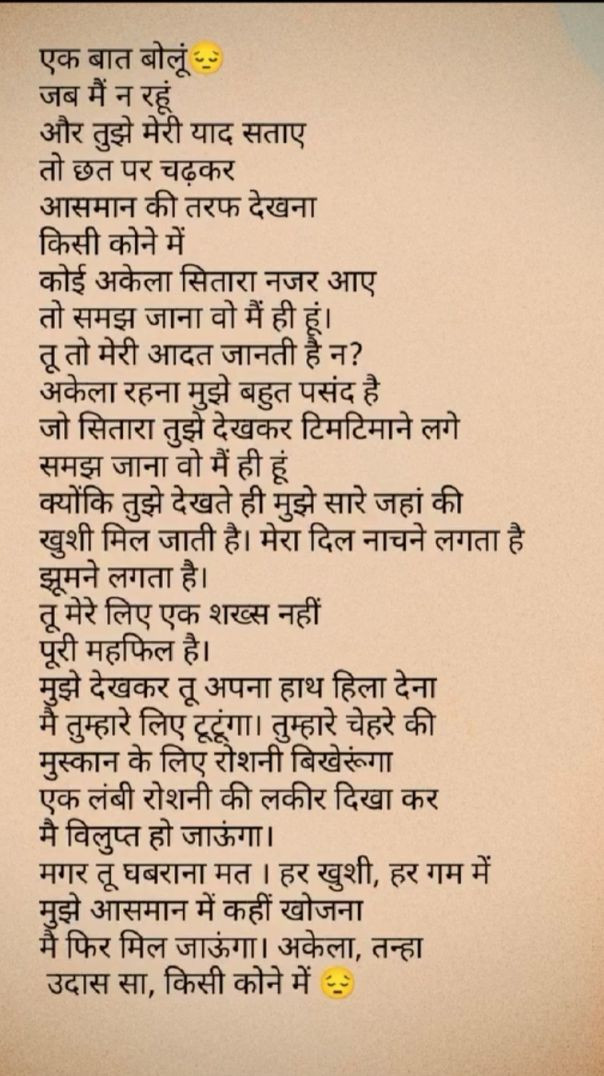 एक बात बोलूं😔
जब मैं न रहूं
और तुझे मेरी याद सताए
तो छत पर चढ़कर
आसमान की तरफ देखना
किसी कोने में
कोई अकेला सितारा नजर आए
तो समझ जाना वो मैं ही हूं।
तू तो मेरी आदत जानती है न?
अकेला रहना मुझे बहुत पसंद है
जो सितारा तुझे देखकर टिमटिमाने लगे
समझ जाना वो मैं ही हूं
क्योंकि तुझे देखते ही मुझे सारे जहां की
खुशी मिल जाती है। मेरा दिल नाचने लगता है
झूमने लगता है।
तू मेरे लिए एक शख्स नहीं
पूरी महफिल है।
मुझे देखकर तू अपना हाथ हिला देना
मै तुम्हारे लिए टूटूंगा। तुम्हारे चेहरे की
मुस्कान के लिए रोशनी बिखेरूंगा
एक लंबी रोशनी की लकीर दिखा कर
मै विलुप्त हो जाऊंगा।
मगर तू घबराना मत । हर खुशी, हर गम में
मुझे आसमान में कहीं खोजना
मै फिर मिल जाऊंगा। अकेला, तन्हा
उदास सा, किसी कोने में 😔